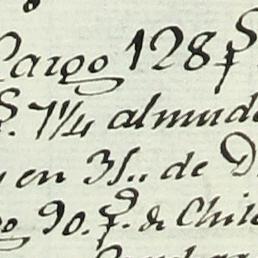 Cargo 128 p.s
s. 7 1/4 almud
en 31.. de D
go 90. p.s de Chil